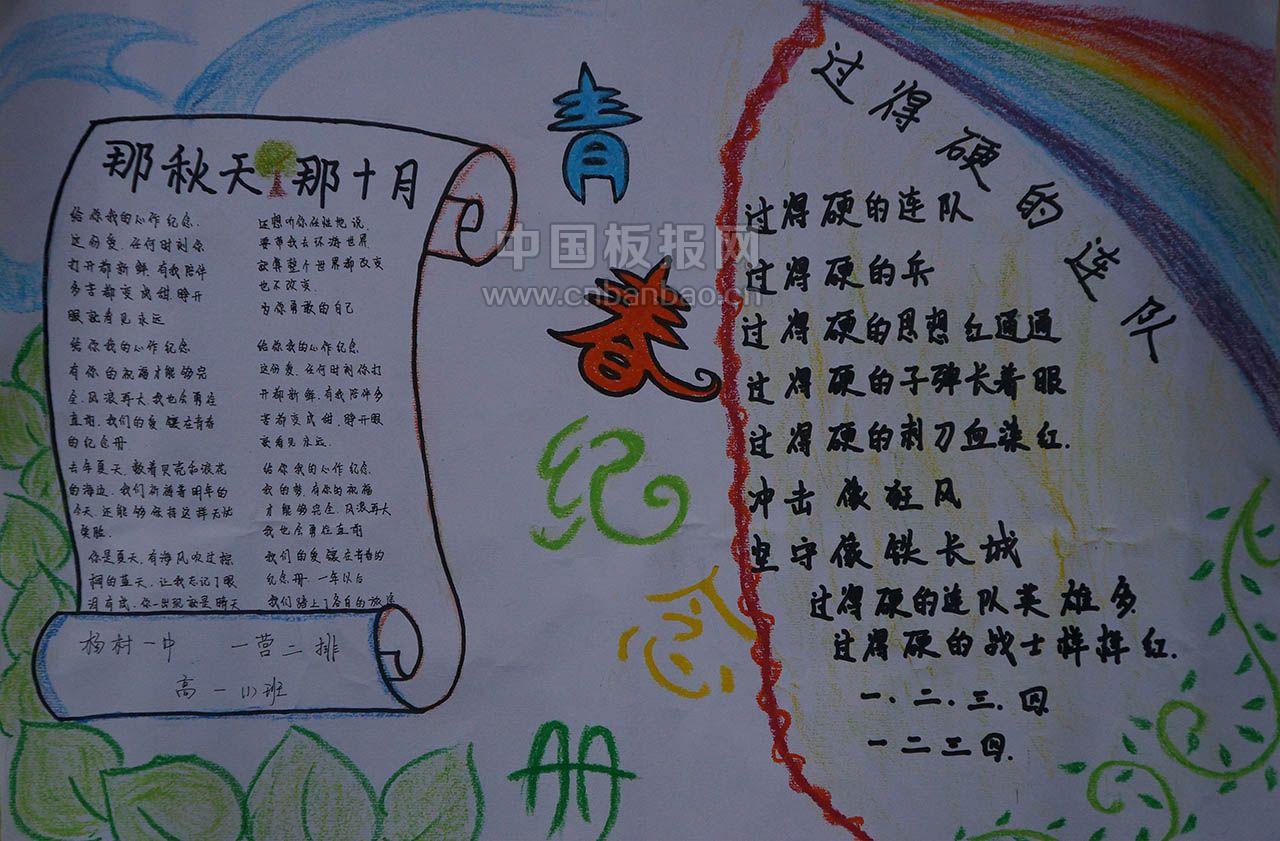 那秋天 那十月
给你我的心作纪念.
这份爱.任何时刻你
打开都新鲜.有我陪伴
多苦都变成甜.睁开
眼就看见永远
给你我的心作纪念
有你的祝福才能够完
全.风浪再大我也会勇往
直前.我们的爱镶在青春
的纪念册.
去年夏天.数着贝壳和浪花
的海边.我们祈祷着明年的
今天.还能够保持这样无忧
笑脸.
你是夏天.有海风吹过擦
拭的蓝天.让我忘记了眼
泪有咸.你一出现就是晴天
还想听你任性地说.
要带我去环游世界
就算整个世界都改变
也不改变
为你勇敢的自己
给你我的心作纪念
这份爱.任何时刻你打
开都新鲜.有我陪伴多
苦都变成甜.睁开眼
就看见永远.
给你我的心作纪念
我的梦.有你的祝福
才能够完全.风浪再大
我也会勇往直前
我们的爱镶在青春的
纪念册.一年以后
我们踏上了各自的旅途
杨村一中 一营二排
高一(1)班
青
春
纪
念
册
过得硬的连队
过得硬的连队
过得硬的兵
过得硬的思想红通通
过得硬的子弹长着眼
过得硬的刺刀血染红.
冲击像狂风
坚守像铁长城
过得硬的连队英雄多
过得硬的战士样样红.
一.二.三.四
一二三四.
中国板报网
www.cnbanbao.cn